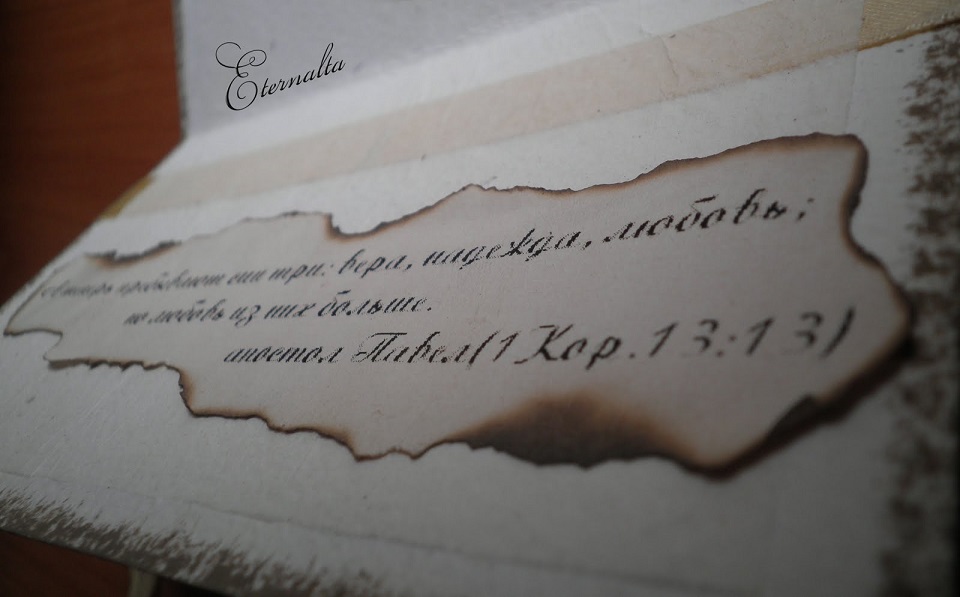 Eternalta
теперь пребывают сии три: вера, надежда, любовь;
но любовь из них больше.
апостол Павел(1 Кор.13:13)